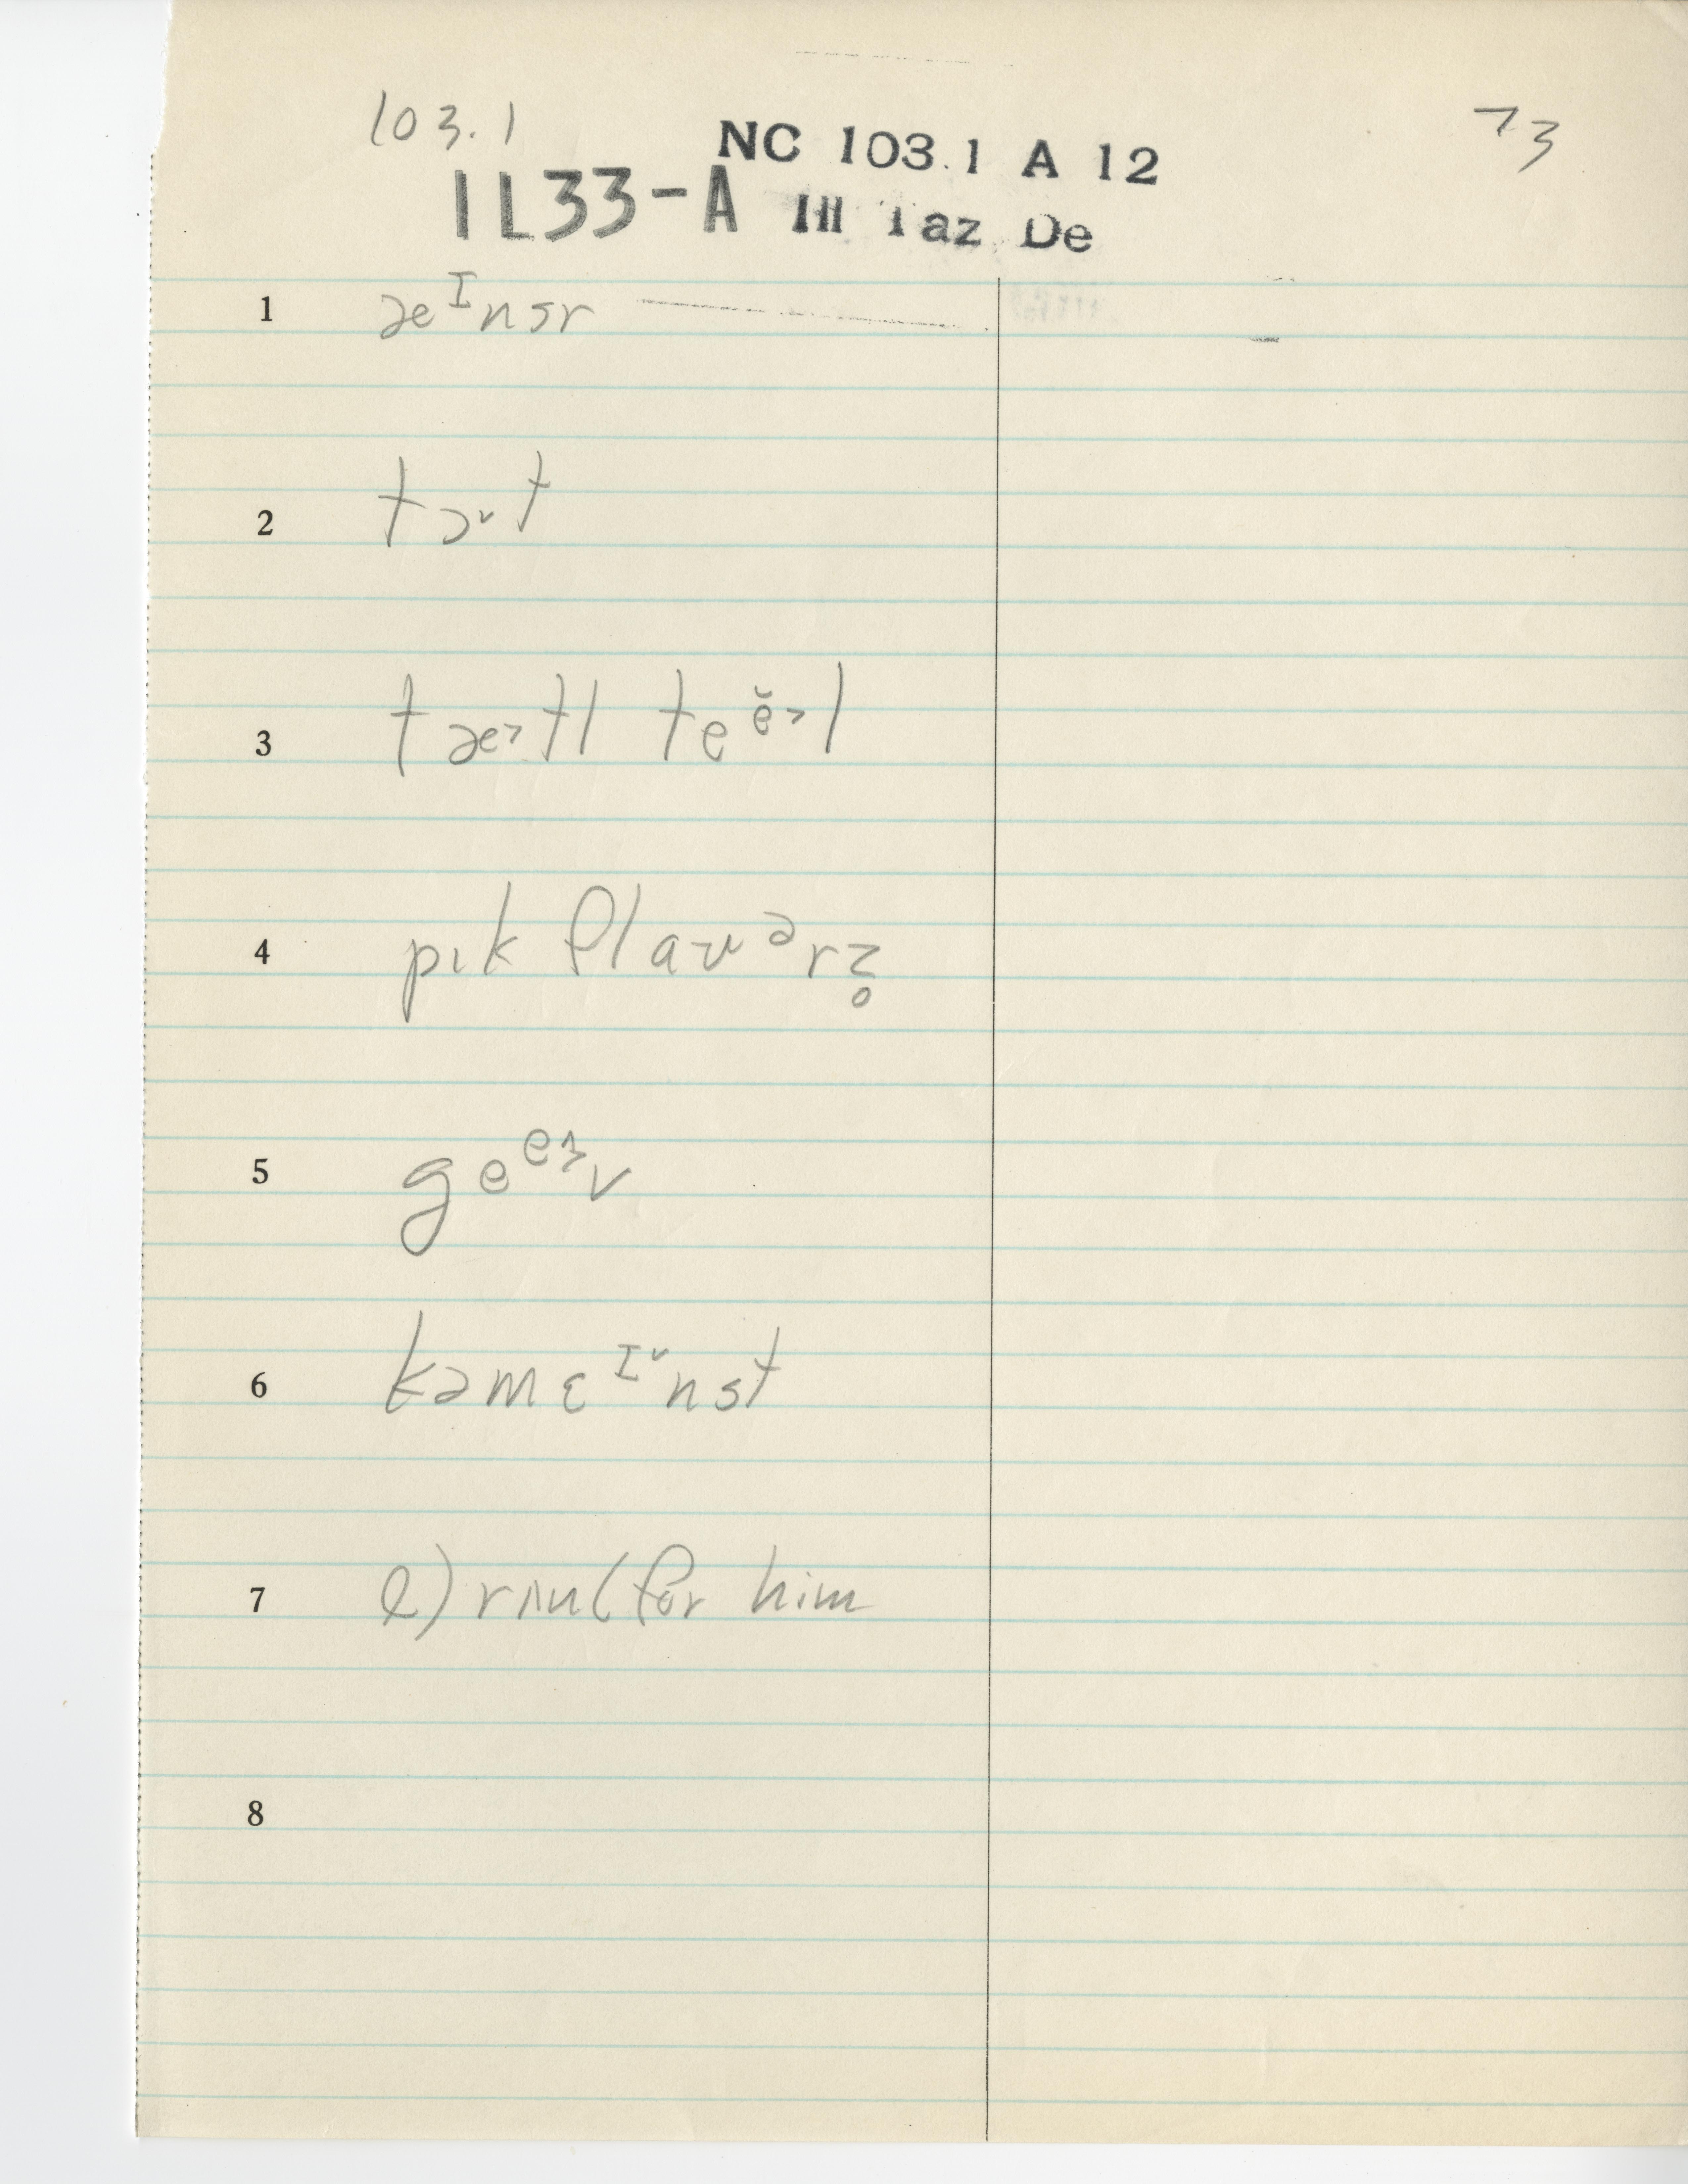 103.1
73
NC 103.1 A 12
IL33-A
Ill Taz De
1 æᴵnsr
2 tɔ˅t
3 tæ˃tl teĕ˃l
4 pɪk flaʊᵊrz̥
5 geᵉ v
6 kəmɛᴵ˅nst
7 e) rʌn (for him
8